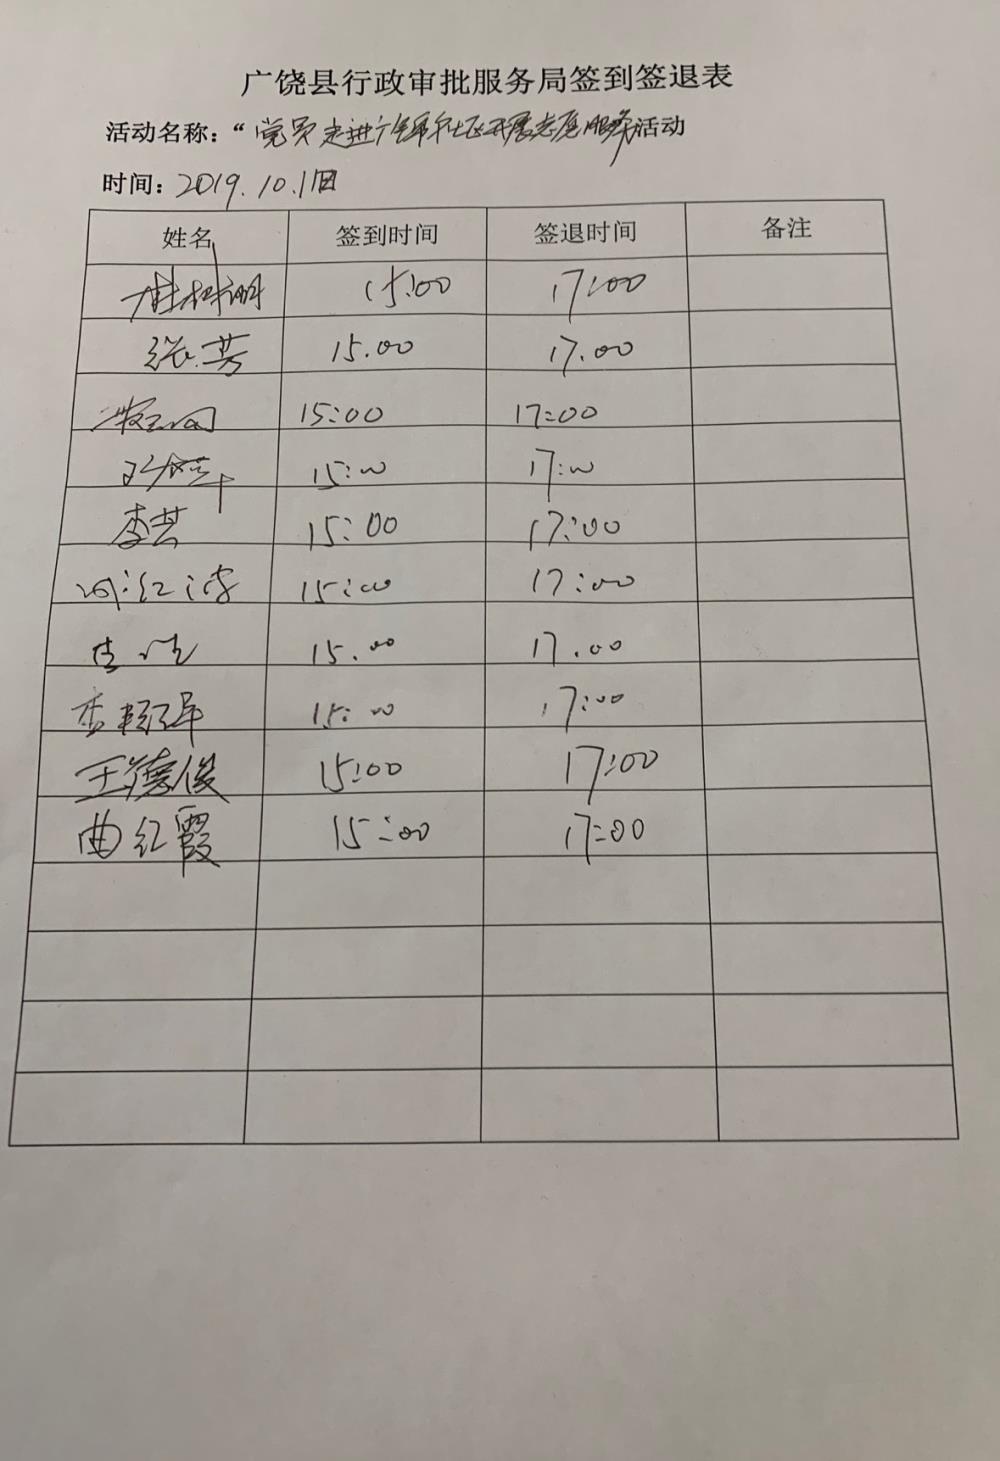 广饶县行政审批服务局签到签退表
活动名称：“党员走进社区开展志愿服务活动
时间：2019.10.11日
姓名 签到时间 签退时间 备注
15:00 17:00
张芳 15.00 17.00
15:00 17:00
15:00 17:00
李芸 15:00 17:00
15:00 17:00
15.00 17.00
15:00 17:00
王德俊 15:00 17:00
曲红霞 15:00 17:00